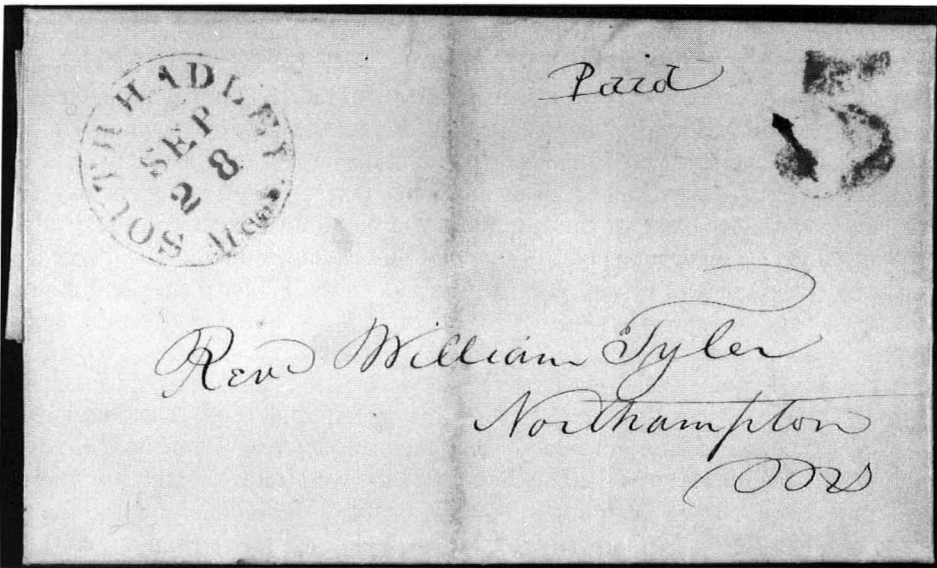 SOUTH HADLEY Mass.
SEP
28
Paid
5
Rev William Tyler
Northampton
Ms